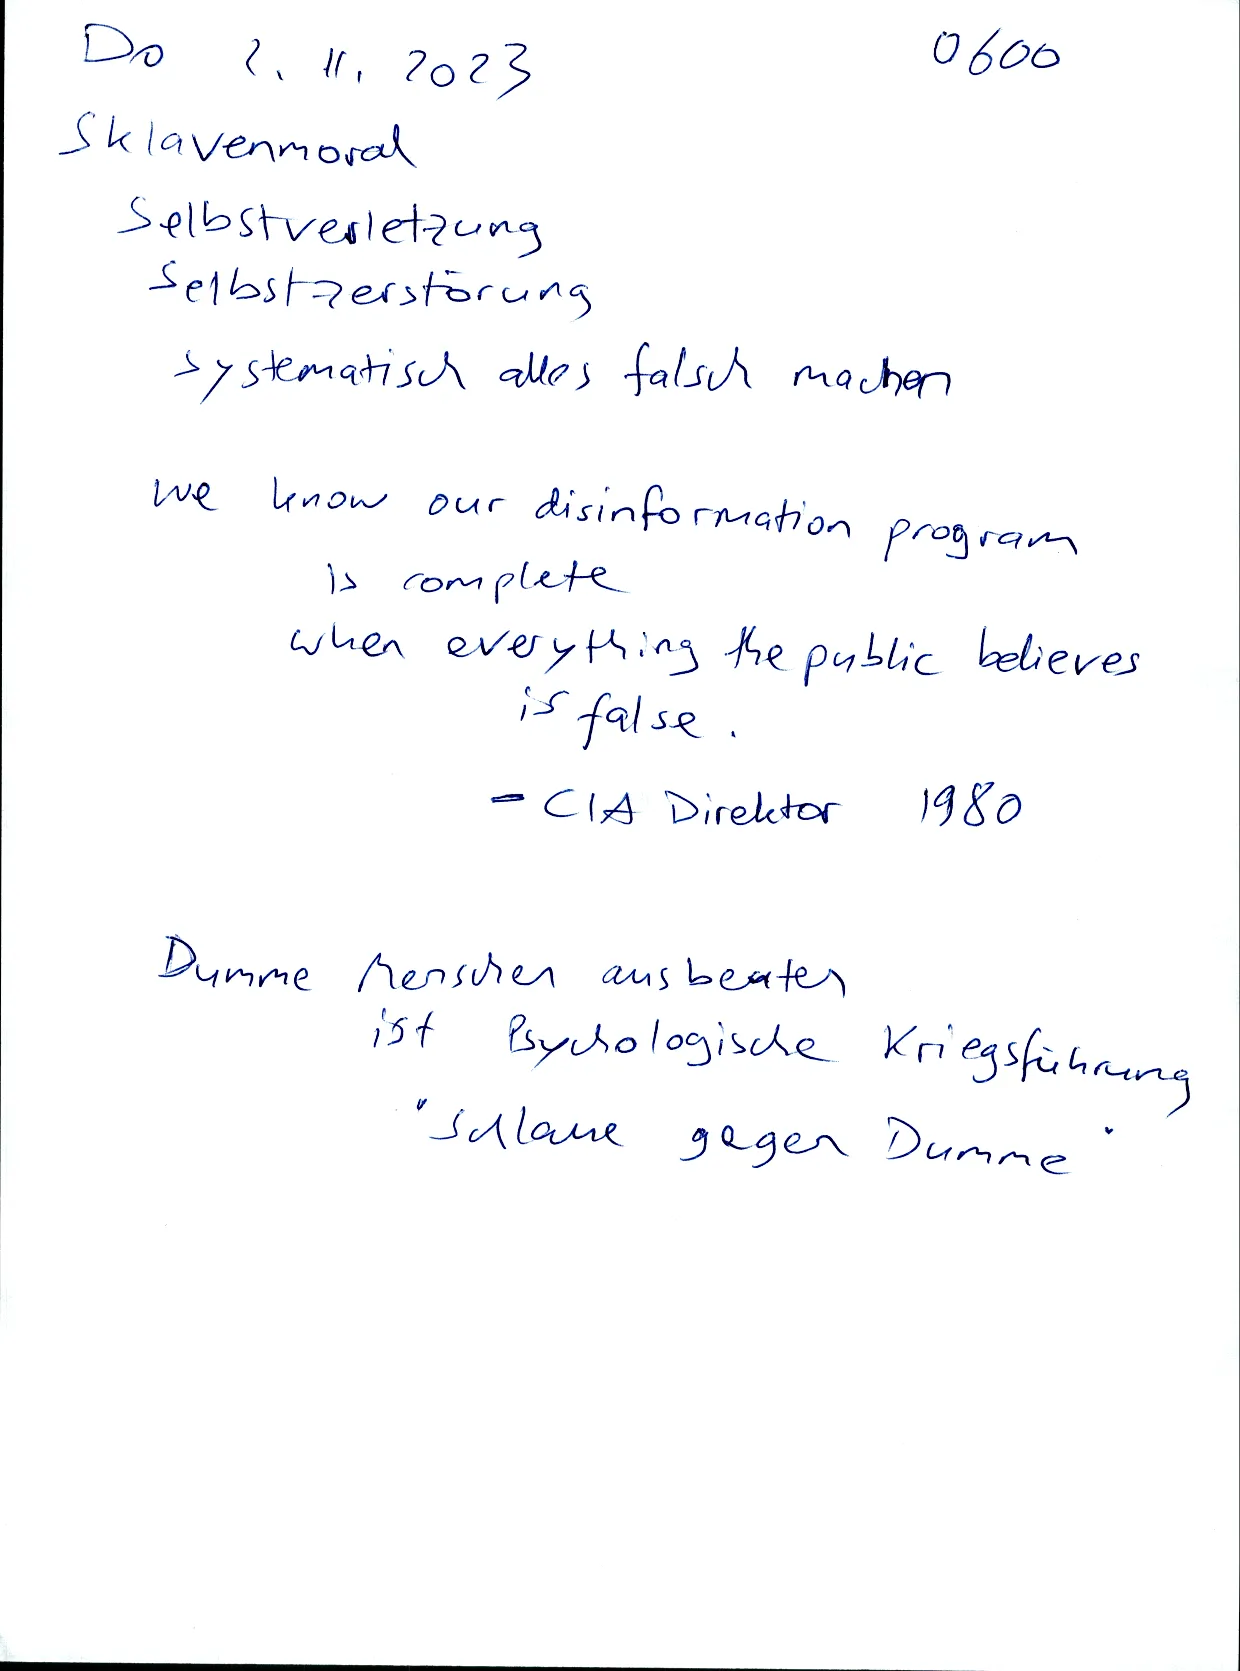 Do 2. 11. 2023 0600
Sklavenmoral
Selbstverletzung
Selbstzerstörung
systematisch alles falsch machen
we know our disinformation program
is complete
when everything the public believes
is false.
- CIA Direktor 1980
Dumme Menschen ausbeuten
ist Psychologische Kriegsführung
"Schlaue gegen Dumme"